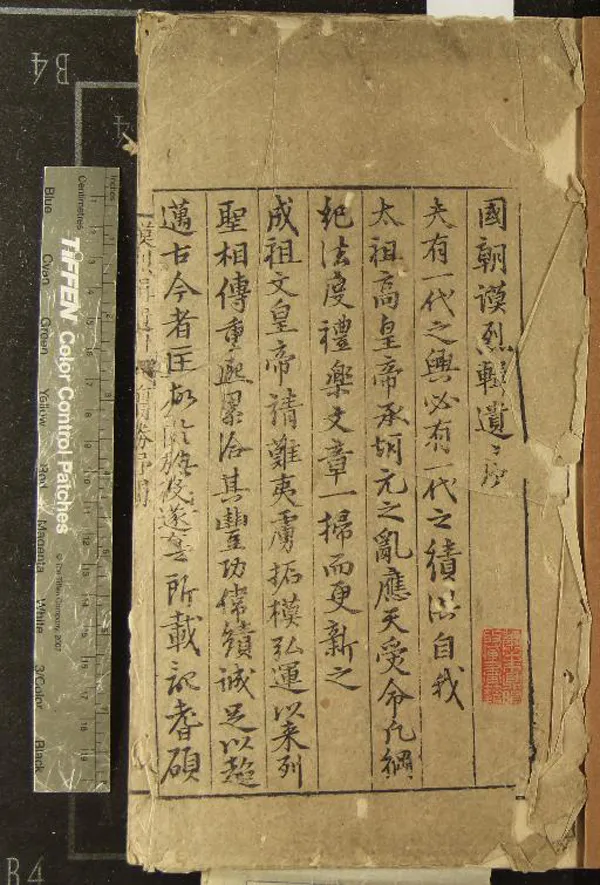 國朝謨烈輯遺
夫有一代之興必有一代之績洪自我
太祖高皇帝承胡元之亂應天受命凡綱
紀法度禮樂文章一掃而更新之
成祖文皇帝靖難夷虜拓模弘運以来列
聖相傳重熙累洽其豐功偉績誠足以超
邁古今者
所載記耆碩
B4
4
TIFFEN Color Control Patches
© The Tiffen Company, 2007
Centimetres
Inches
Blue
Cyan
Green
Yellow
Red
Magenta
White
3/Color
Black
B4